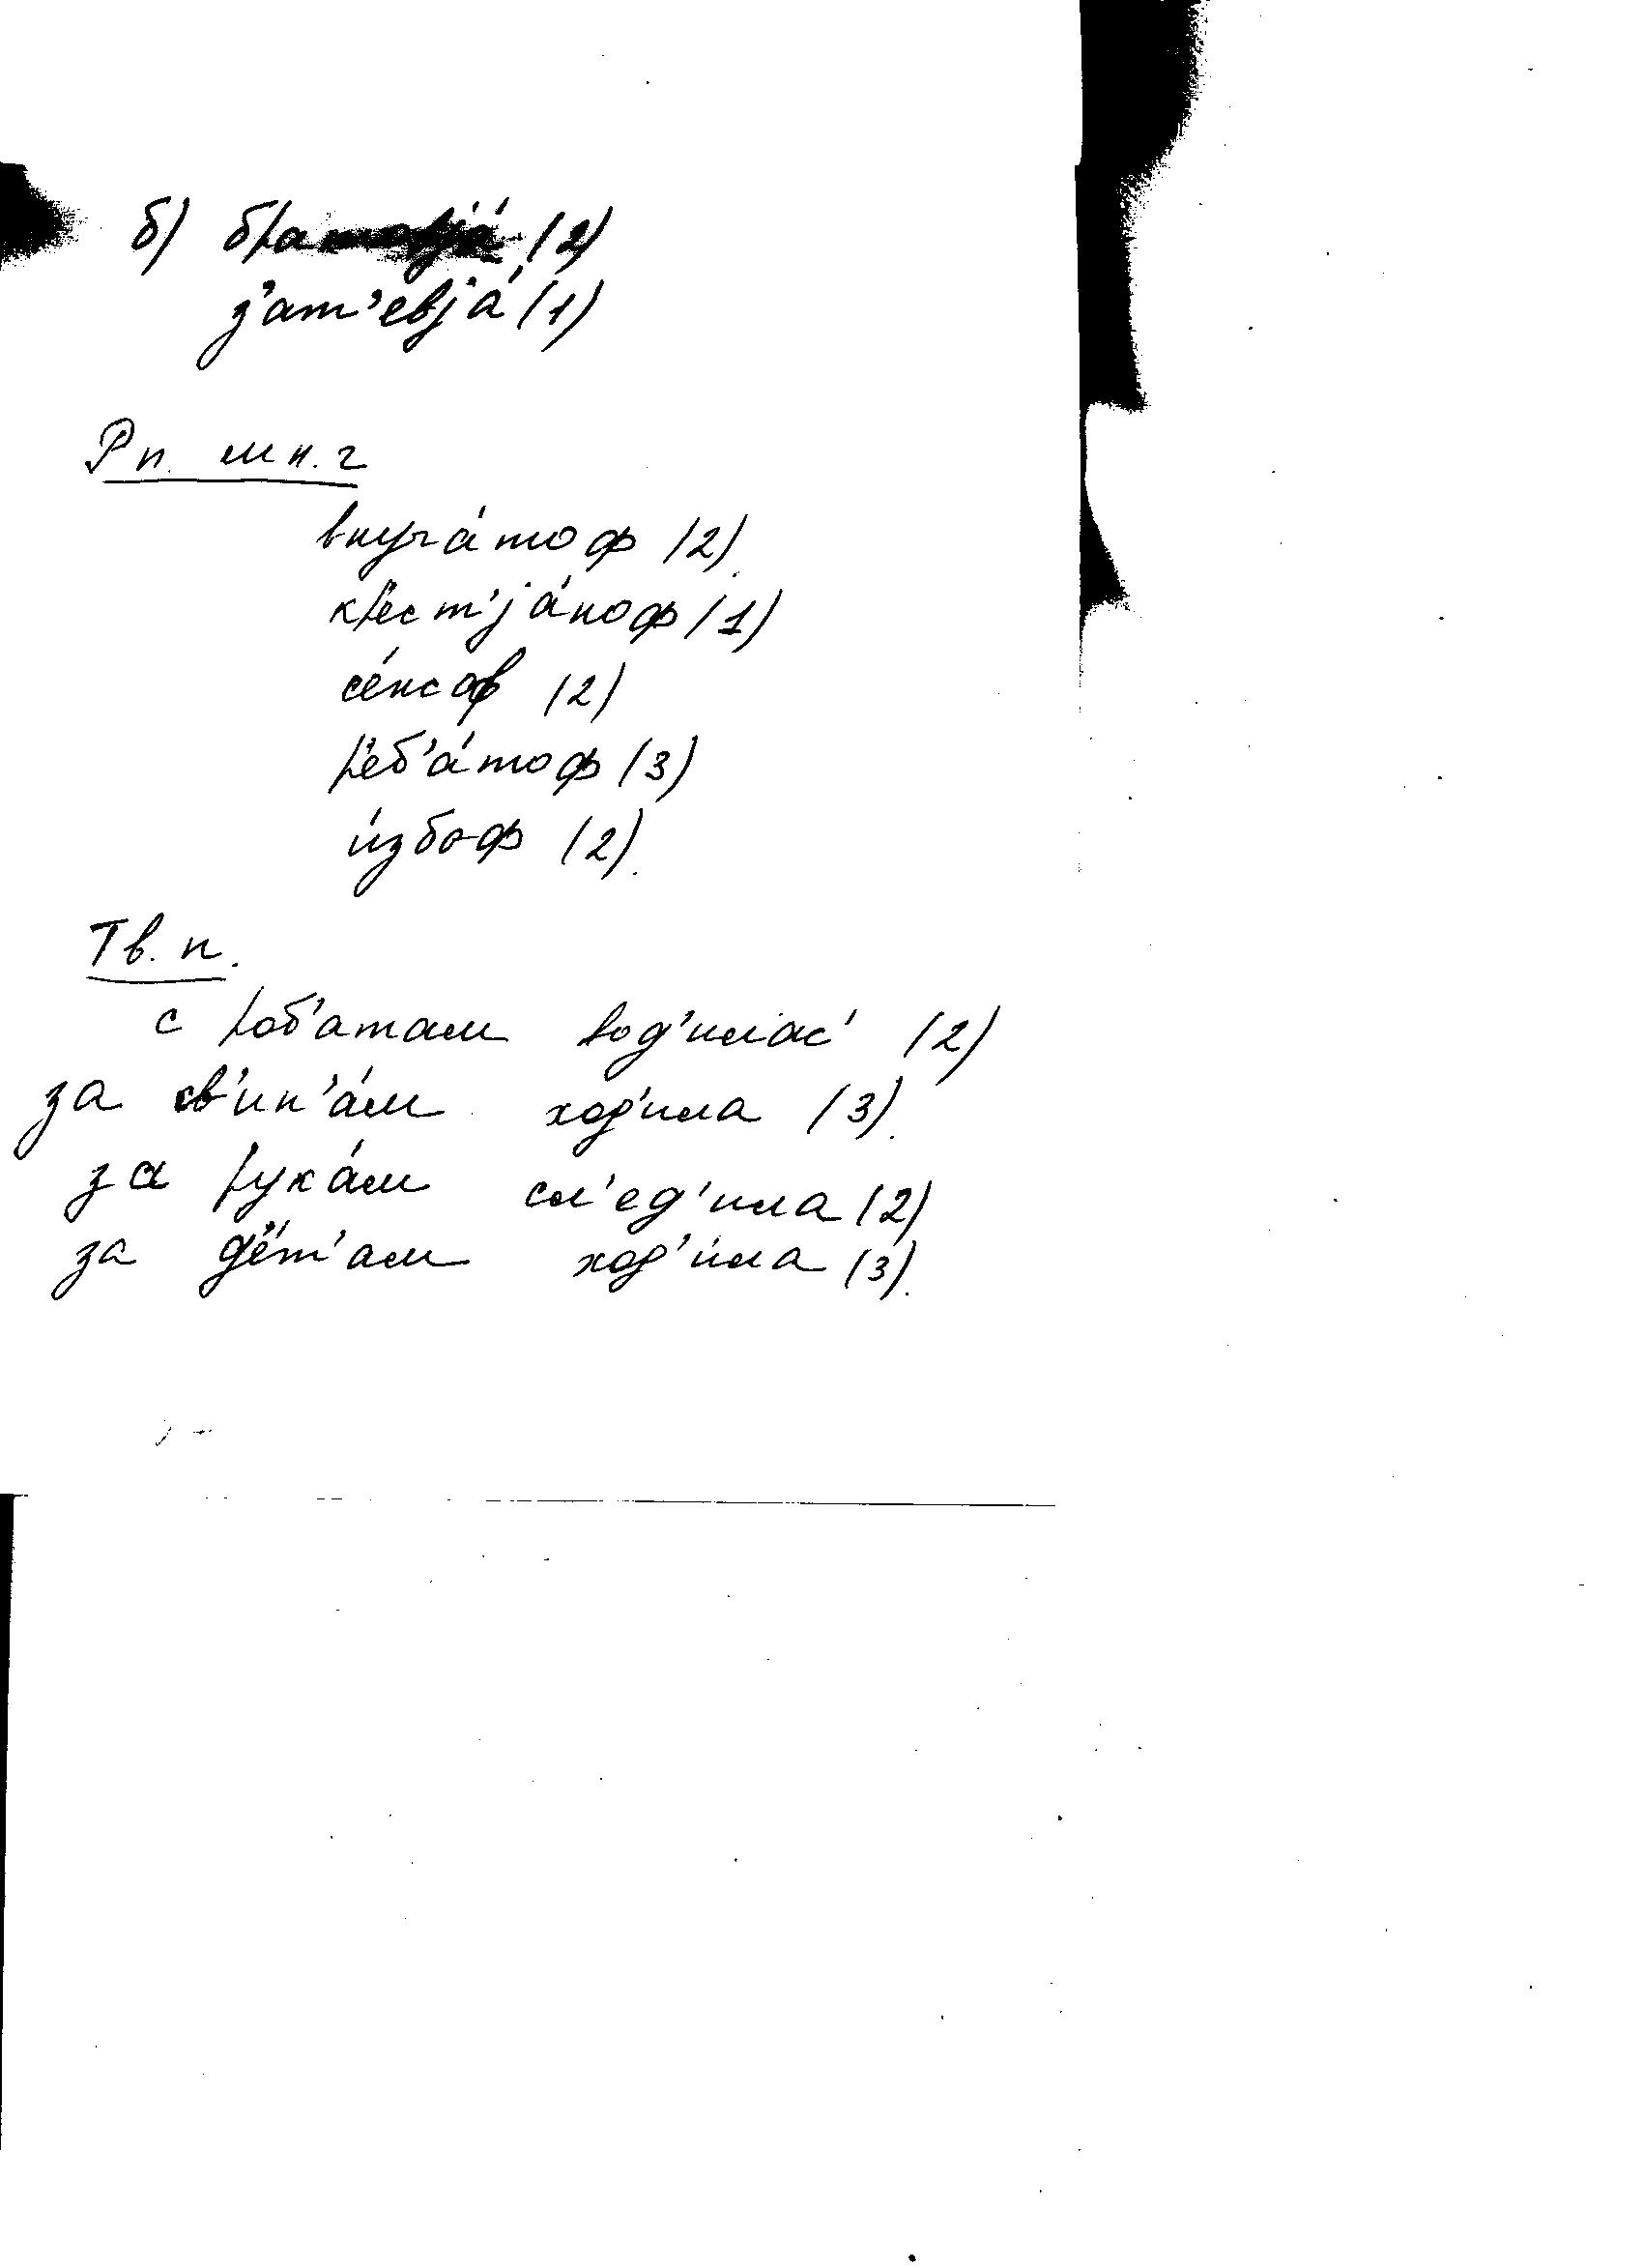 б) братовjа́ (2)
з'ат'евjа́ (1)
Рп. мн. ч
внуча́тоф (2)
кр'ест'jа́ноф (1)
се́нсоф (2)
р'еб'а́тоф (3)
и́збоф (2)
Тв. п.
с роб'атам вод'илас' (2)
за св'ин'а́м ход'ила (3)
за рука́м сл'ед'ила (2)
за д'е́т'ам ход'и́ла (3)